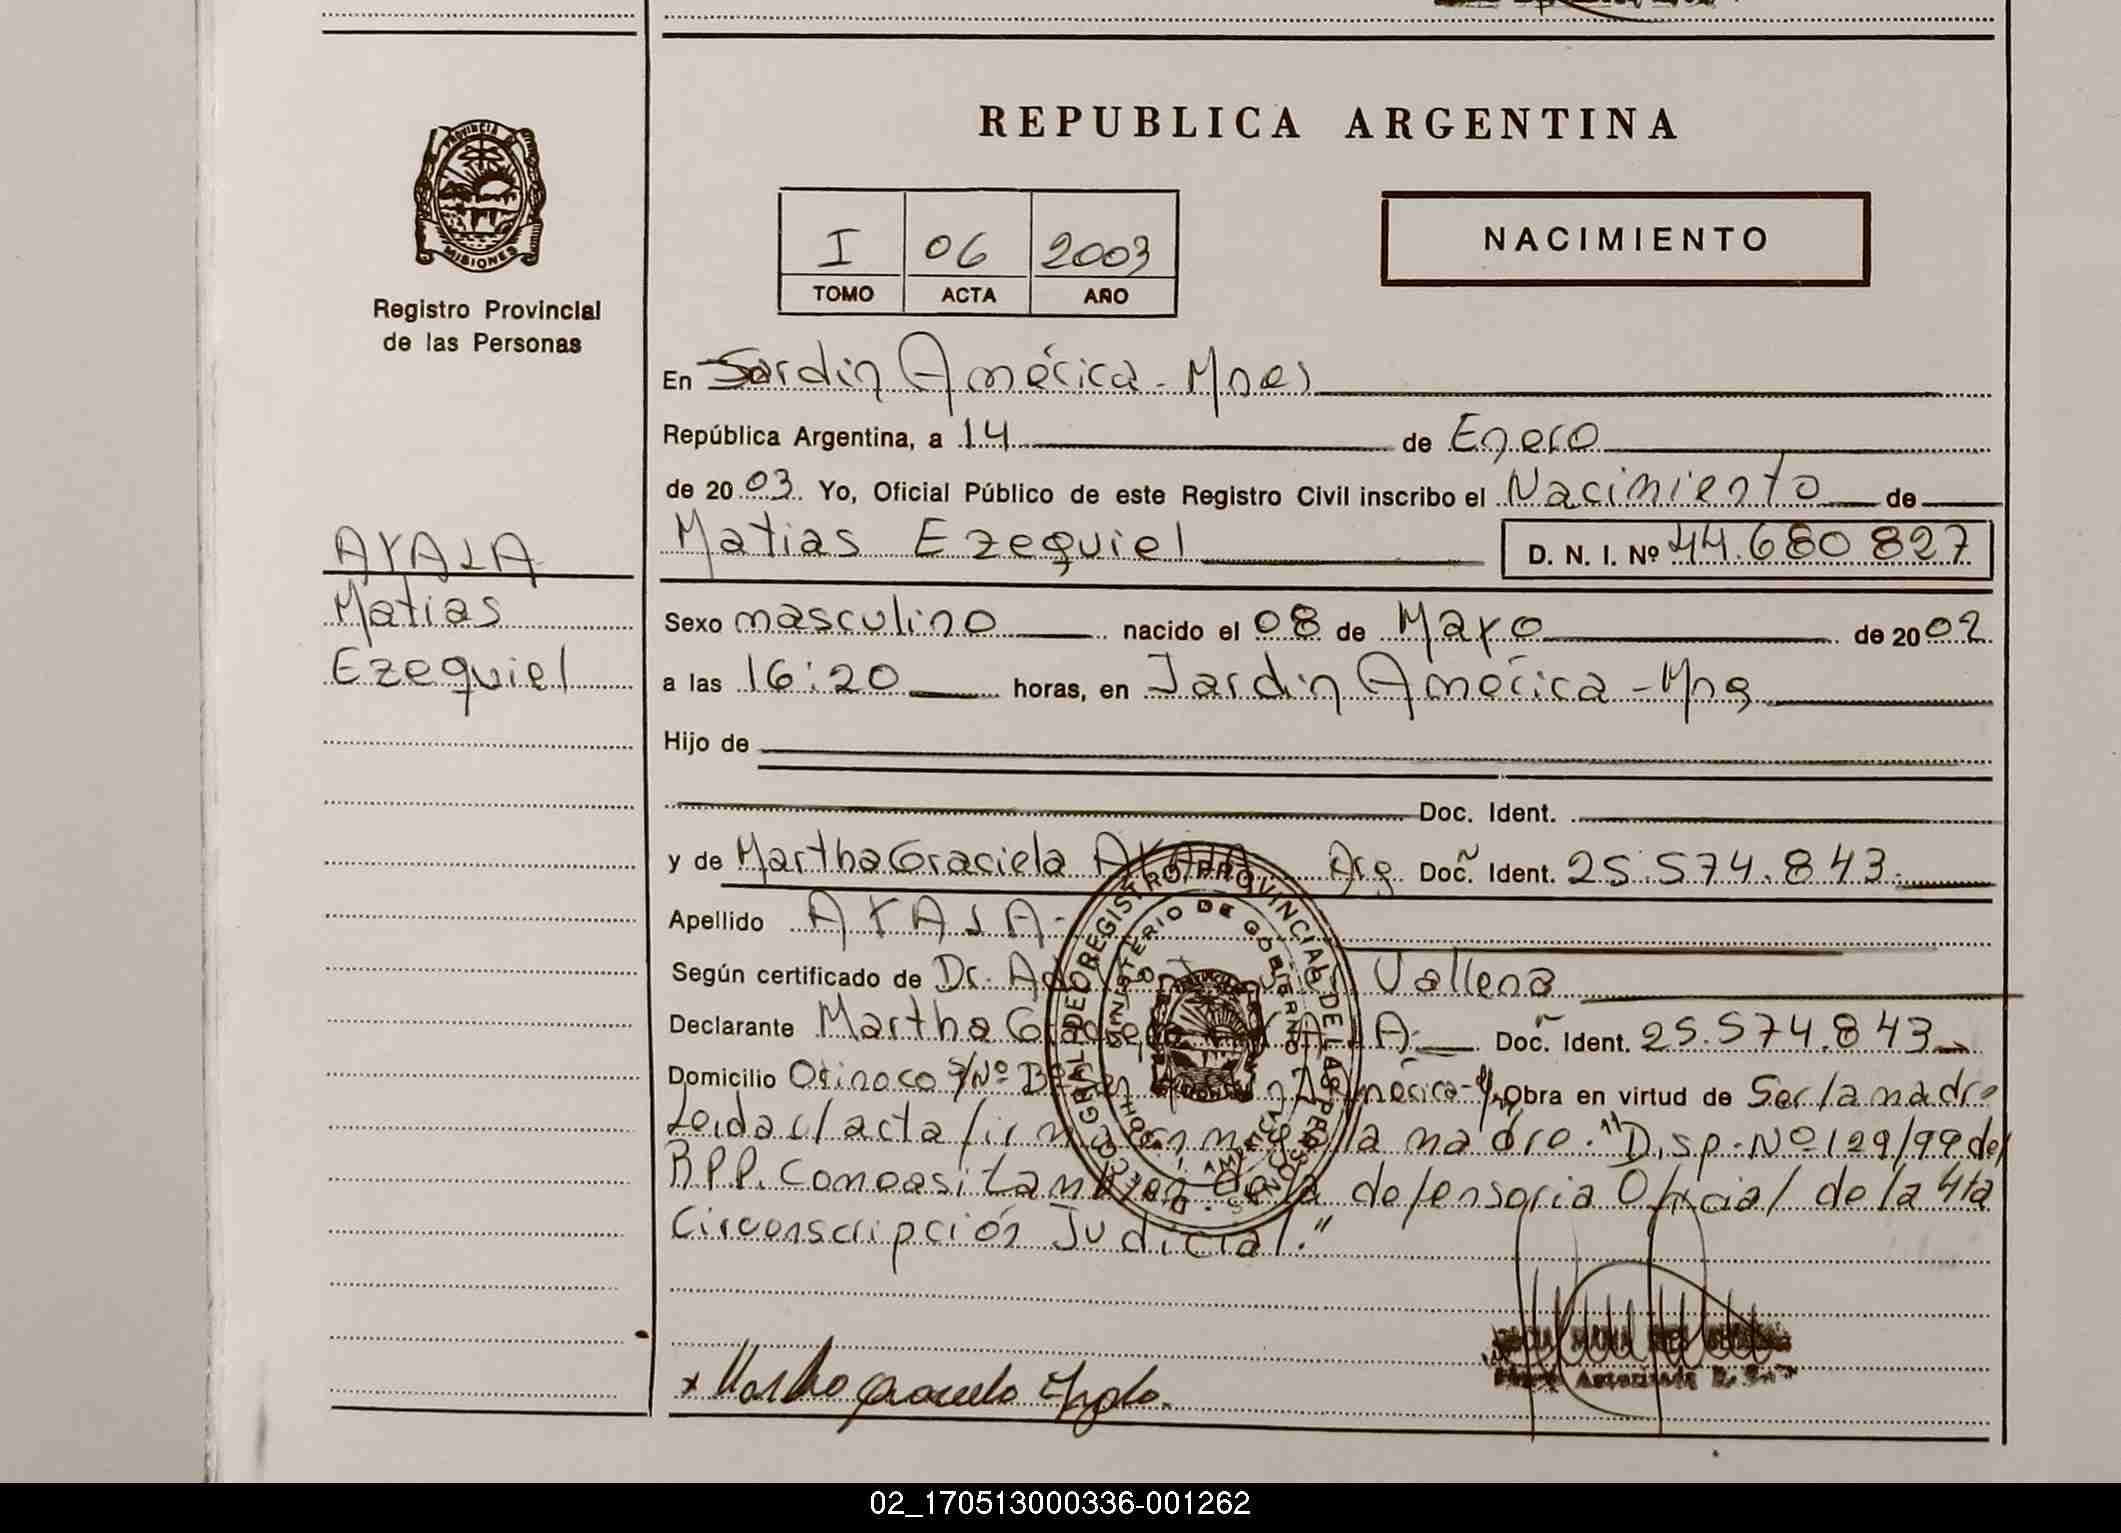 PROVINCIA
MISIONES
Registro Provincial
de las Personas
AYALA
Matias
Ezequiel
REPUBLICA ARGENTINA
I 06 2003
TOMO ACTA AÑO
NACIMIENTO
En Jardin América - Mnes
República Argentina, a 14 de Enero
de 2003. Yo, Oficial Público de este Registro Civil inscribo el Nacimiento de
Matias Ezequiel D. N. I. Nº 44.680.827
Sexo masculino nacido el 08 de Mayo de 2002
a las 16:20 horas, en Jardin América - Mns
Hijo de
Doc. Ident.
y de Martha Graciela AYALA Arg. Doc. Ident. 25.574.843.
Apellido AYALA-
Según certificado de Dr. Vallena
Declarante Martha Graciela AYALA- Doc. Ident. 25.574.843
Domicilio Orinoco S/Nº América- Obra en virtud de Ser la madre
Leida el acta firma la madre. "Disp. Nº 129/99 del
R.P.P. Como asi tambien de la defensoria Oficial de la 4ta
Circunscripción Judicial."
DIRECC. GRAL. DE REGISTRO PROVINCIAL DE LAS PERSONAS
MINISTERIO DE GOBIERNO
Martha Graciela Ayala.
02_170513000336-001262